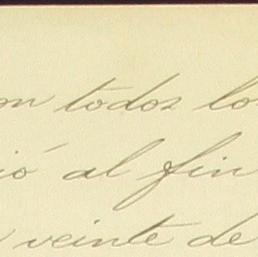 on todos lo
ió al fin
veinte de